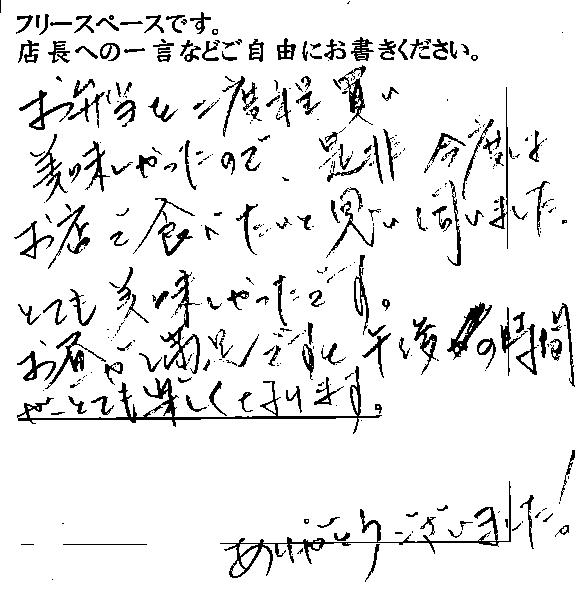 フリースペースです。
店長への一言などご自由にお書きください。
お弁当を二度程買い
美味しかったので、是非今度は
お店で食べたいと思い伺いました。
とても美味しかったです。
お昼が満足ですと午後の時間
がとても楽しくなります。
ありがとうございました!